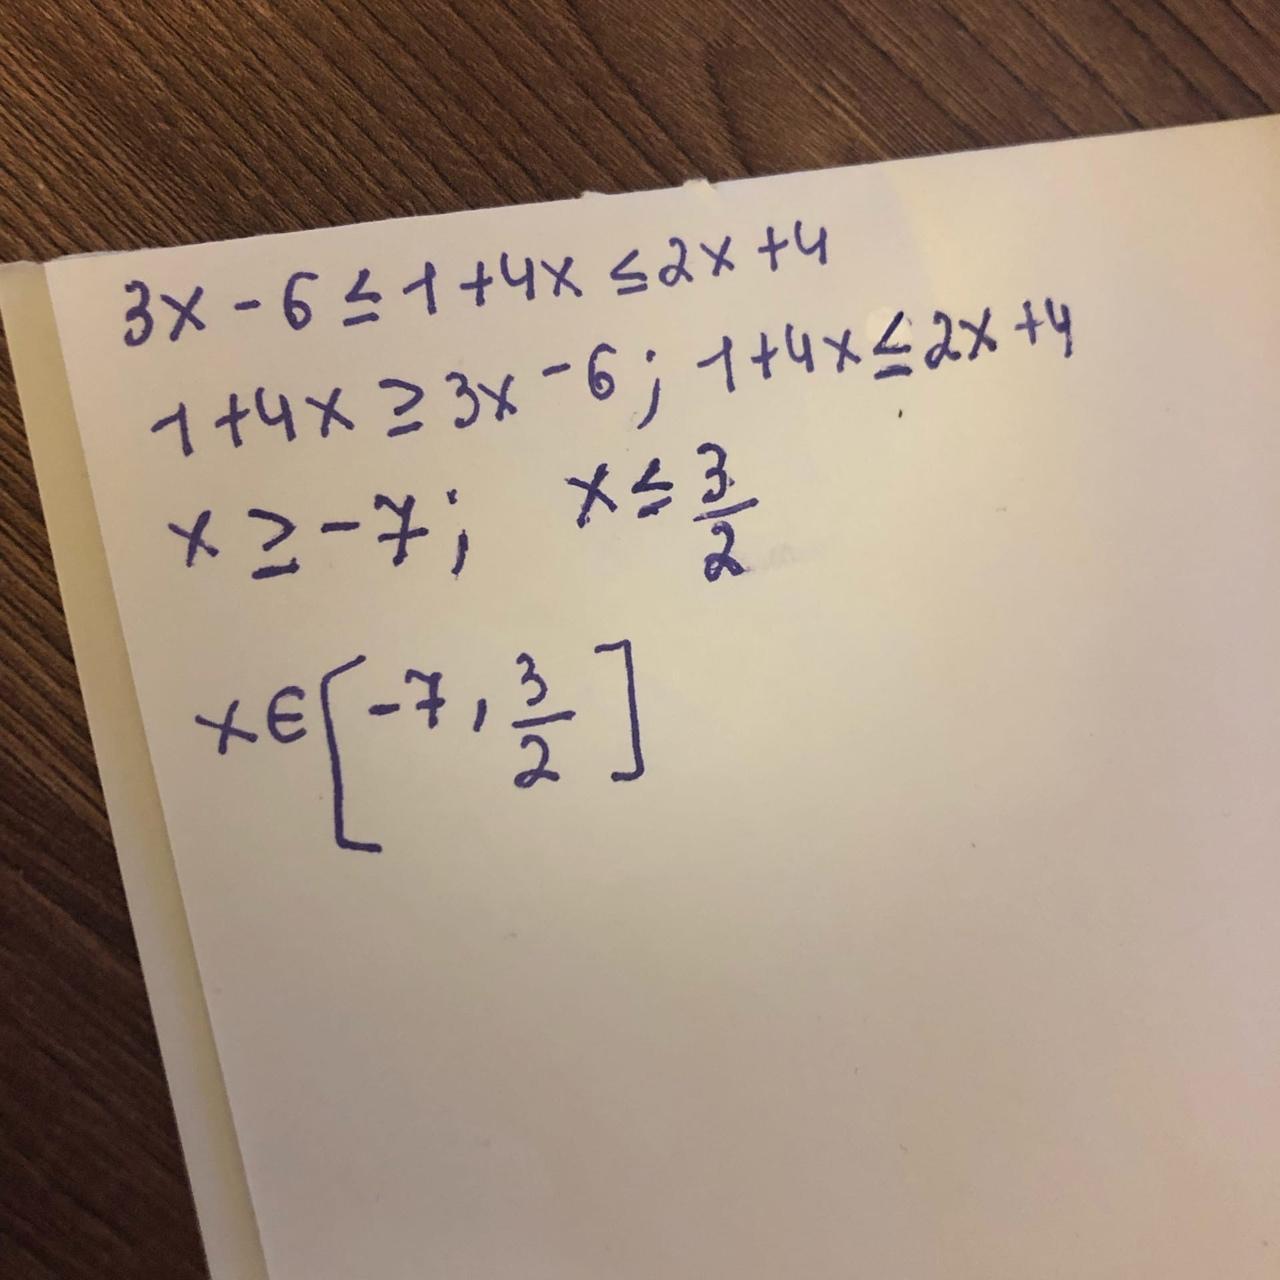 3x - 6 ≤ 1 + 4x ≤ 2x + 4
1 + 4x ≥ 3x - 6; 1 + 4x ≤ 2x + 4
x ≥ -7; x ≤ 3/2
x ∈ [-7, 3/2]